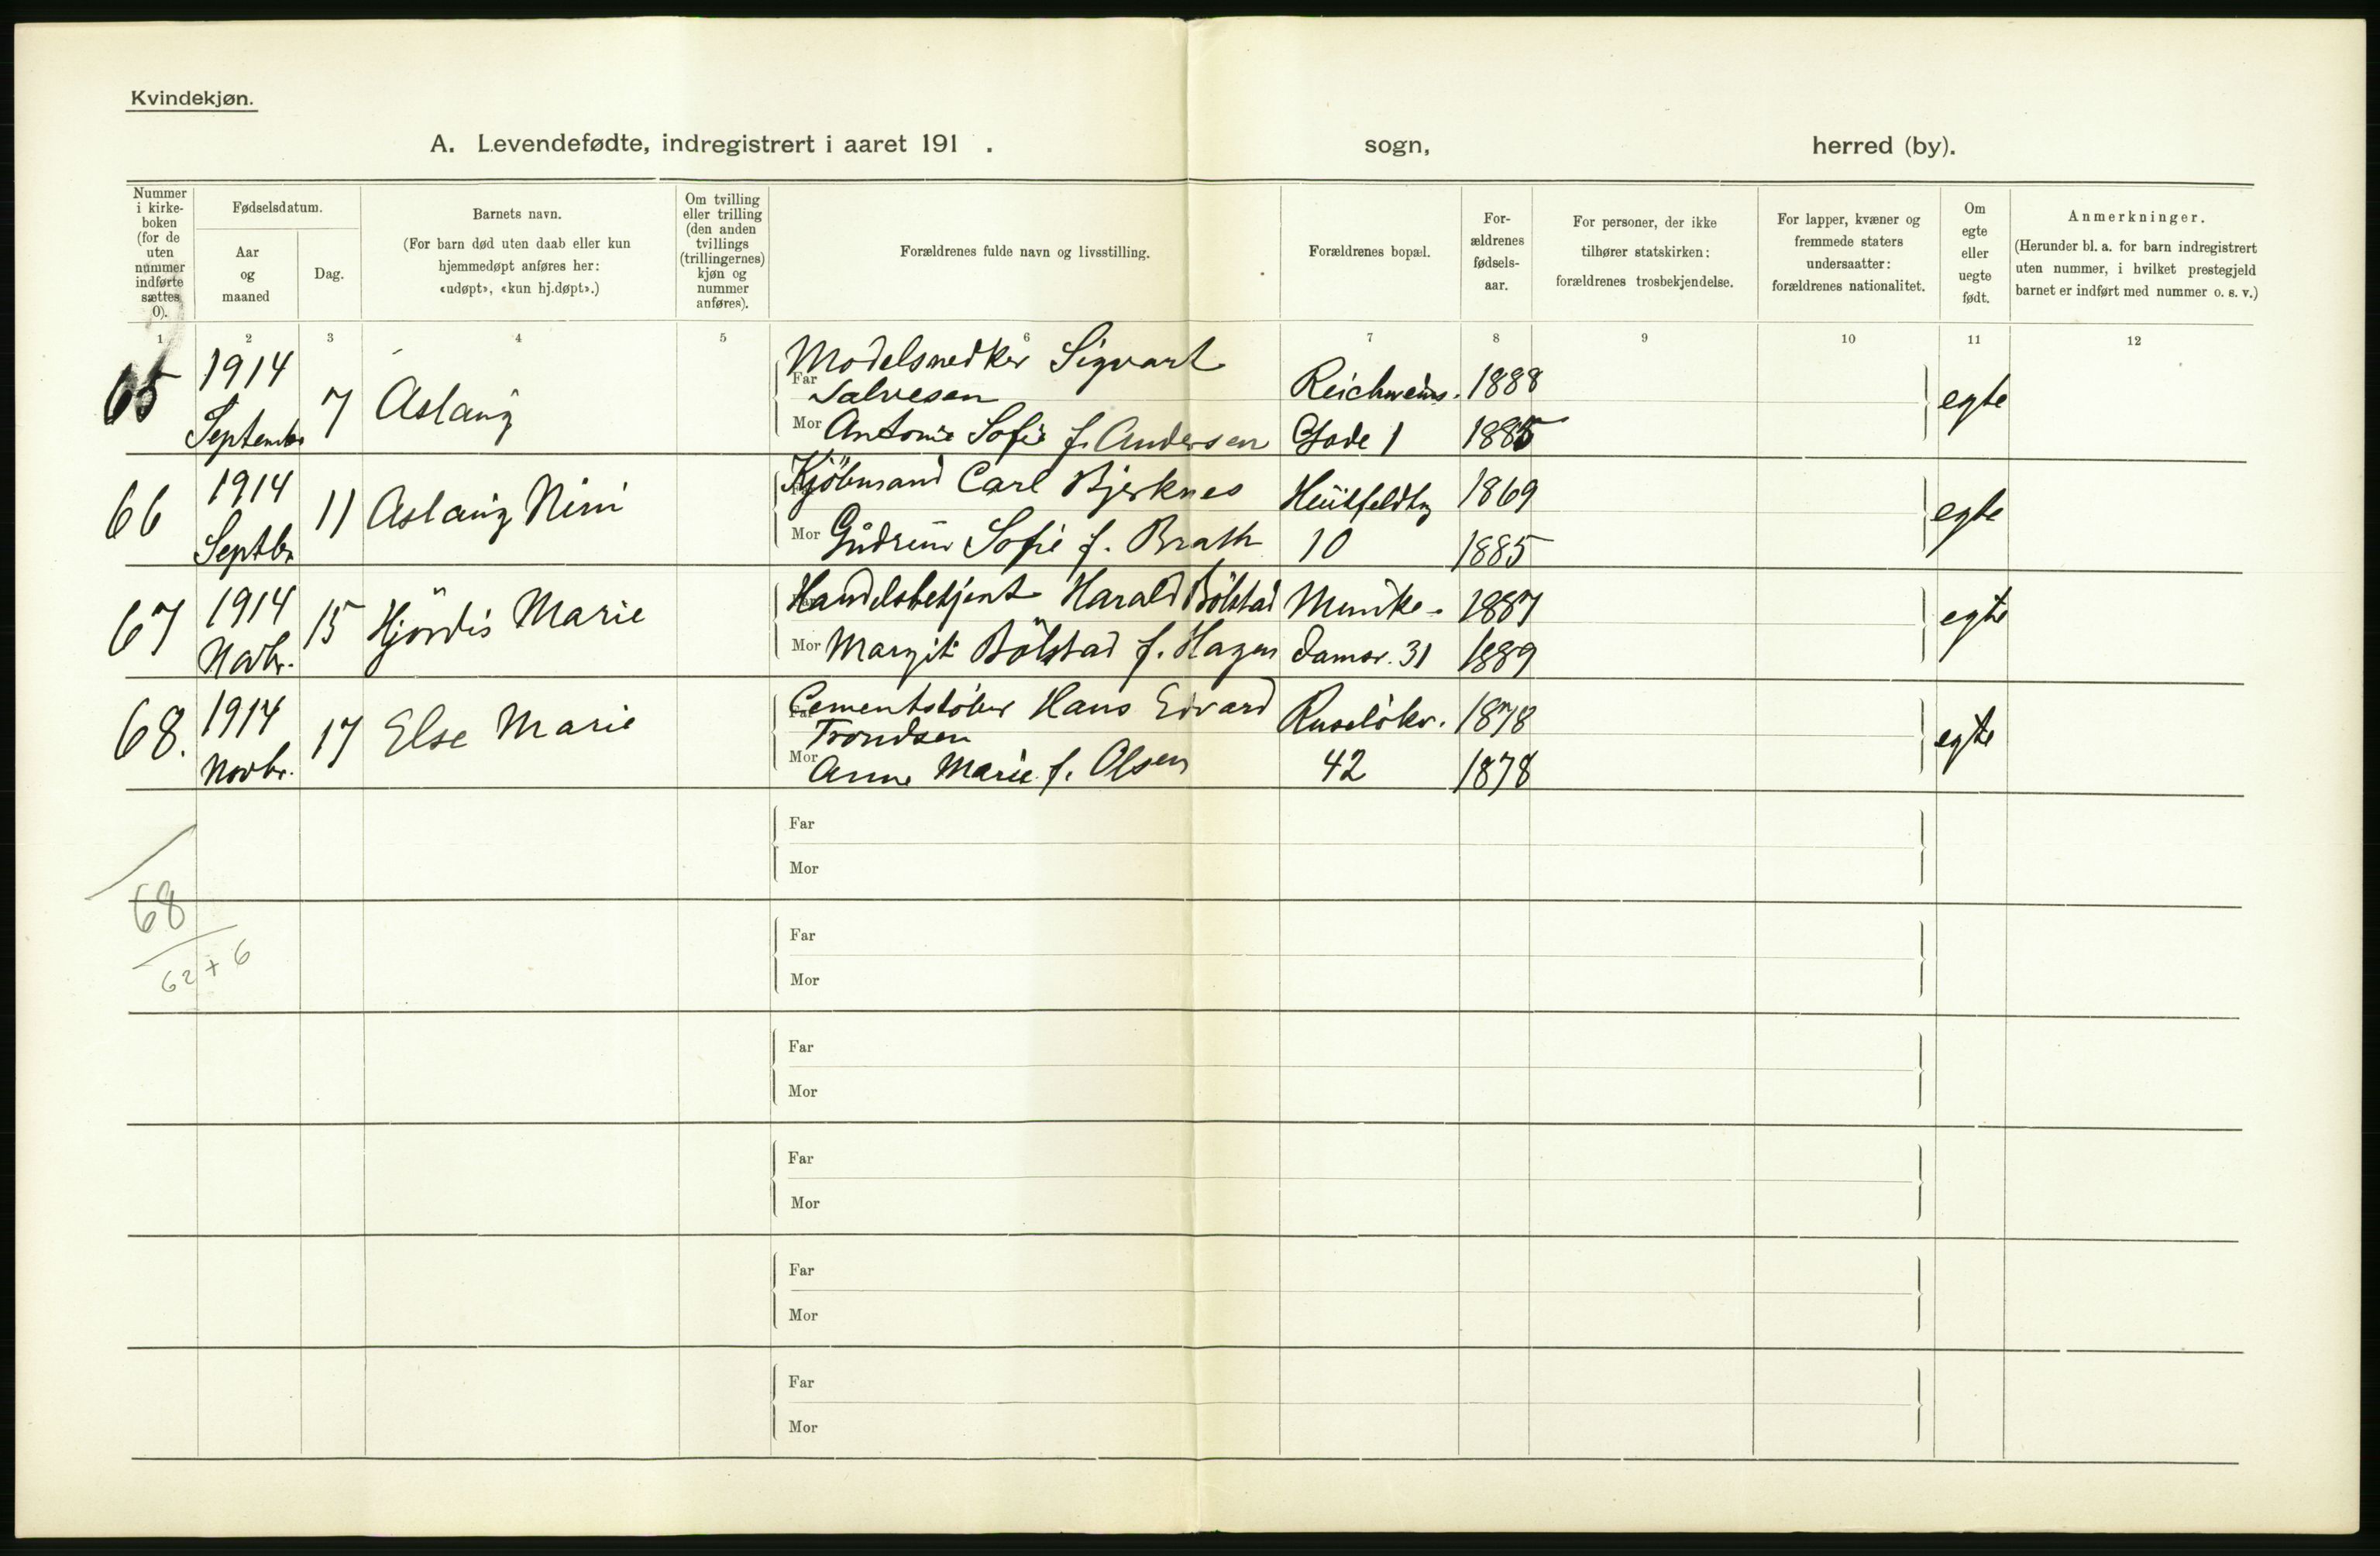 Kvindekjøn.
A. Levendefødte, indregistrert i aaret 191 . sogn, herred (by).
Nummer i kirkeboken (for de uten nummer indførte sættes 0).
Fødselsdatum.
Aar og maaned
Dag.
Barnets navn.
(For barn død uten daab eller kun hjemmedøpt anføres her: «udøpt», «kun hj.døpt».)
Om tvilling eller trilling (den anden tvillings (trillingernes) kjøn og nummer anføres).
Forældrenes fulde navn og livsstilling.
Forældrenes bopæl.
Forældrenes fødselsaar.
For personer, der ikke tilhører statskirken: forældrenes trosbekjendelse.
For lapper, kvæner og fremmede staters undersaatter: forældrenes nationalitet.
Om egte eller uegte født.
Anmerkninger.
(Herunder bl. a. for barn indregistrert uten nummer, i hvilket prestegjeld barnet er indført med nummer o. s. v.)
1 2 3 4 5 6 7 8 9 10 11 12
65 1914 Septembr 7 Aslaug
Far Modelsnedker Sigvart Salvesen Reichweins. 1888
Mor Antonie Sofie f. Andersen Gade 1 1885 egte
66 1914 Septbr 11 Aslaug Nini
Kjöbmand Carl Bjerknes Huitfeldtg 1869
Mor Gudrun Sofie f. Brath 10 1885 egte
67 1914 Novbr. 15 Hjördis Marie
Far Handelsbetjent Harald Bölstad Munke- 1887
Mor Margit Bölstad f. Hagen damsv. 31 1889 egte
68. 1914 Novbr. 17 Else Marie
Far Cementstöber Hans Edvard Trondsen Ruselökv. 1878
Mor Anne Marie f. Olsen 42 1878 egte
Far
Mor
68
62 + 6
Far
Mor
Far
Mor
Far
Mor
Far
Mor
Far
Mor